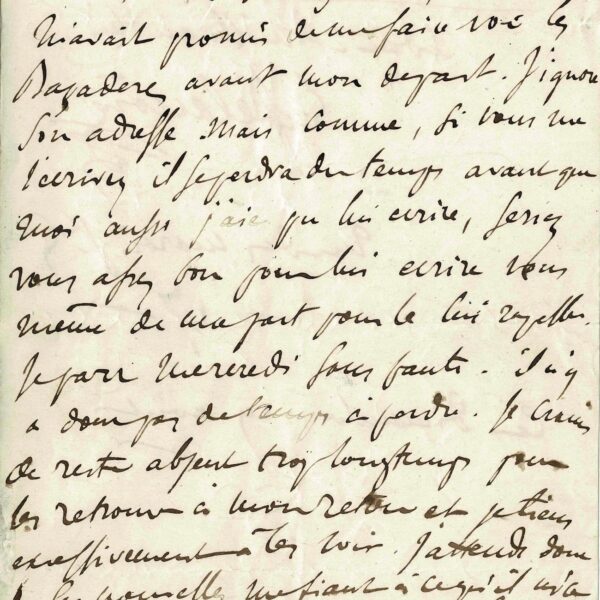 m'avait promis de me faire voir les
Bayadères avant mon départ. J'ignore
son adresse mais comme, si vous me
l'écrivez il se perdra du temps avant que
moi aussi j'aie pu lui écrire, seriez
vous assez bon pour lui écrire vous
même de ma part pour le lui rappeler.
Je pars mercredi sans faute. il n'y
a donc pas de temps à perdre. Je crains
de rester absent trop longtemps pour
les retrouver à mon retour et je tiens
excessivement à les voir. J'attends donc
nouvelles me fiant à ce qu'il m'a